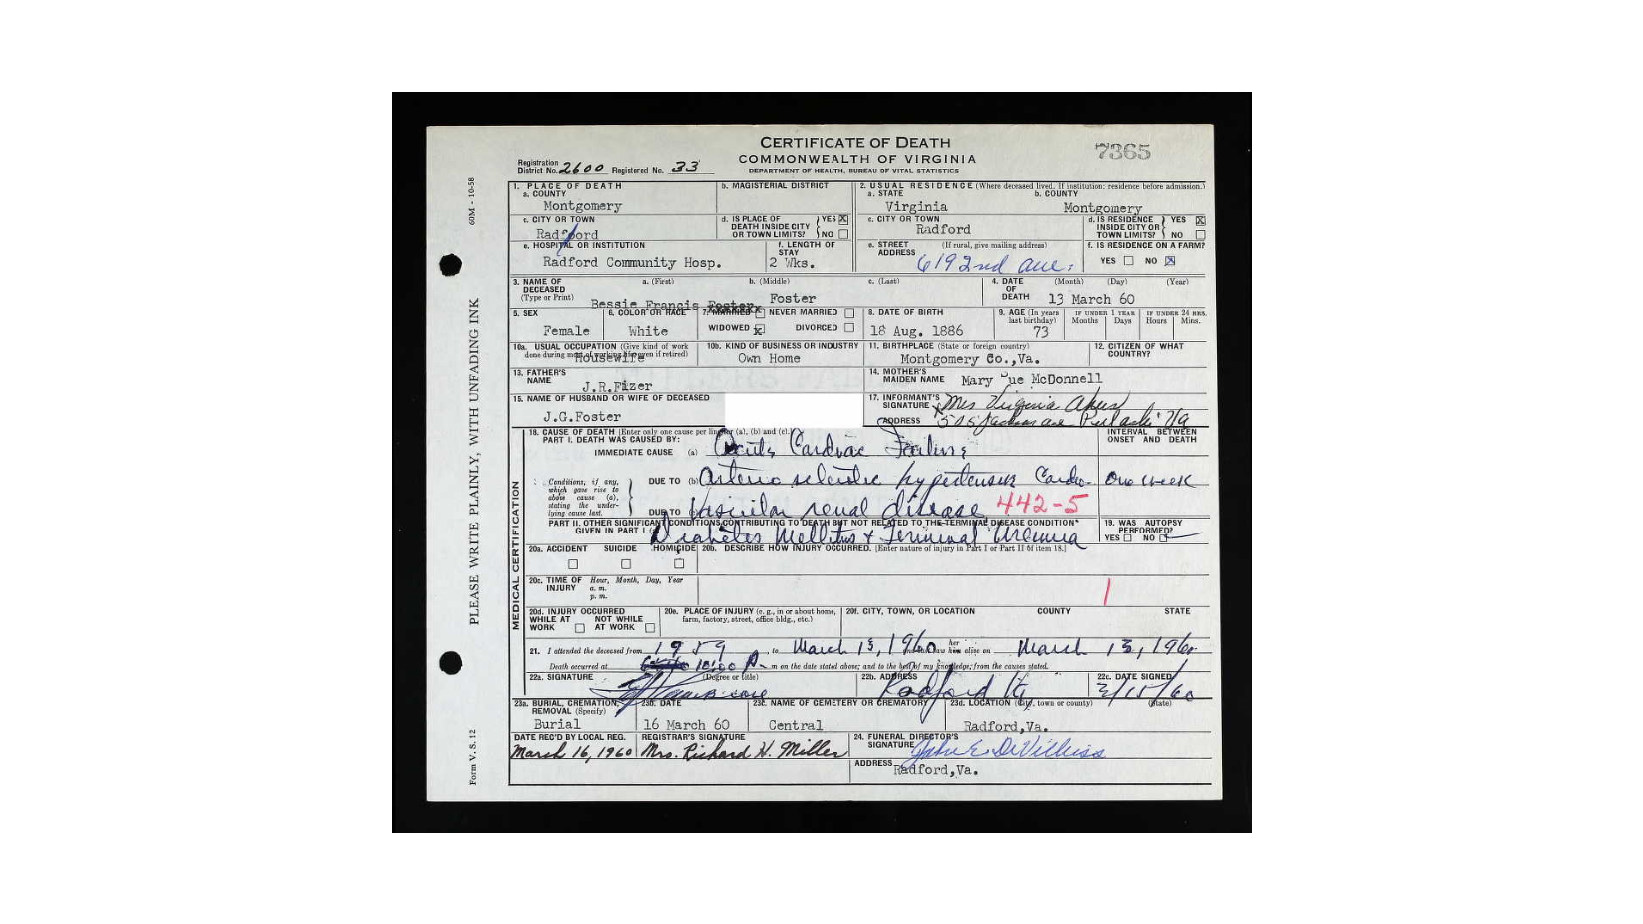 CERTIFICATE OF DEATH
COMMONWEALTH OF VIRGINIA
DEPARTMENT OF HEALTH, BUREAU OF VITAL STATISTICS
7365
Registration District No. 2600 Registered No. 33
60M - 10-58
PLEASE WRITE PLAINLY, WITH UNFADING INK
Form V. S. 12
1. PLACE OF DEATH
a. COUNTY
Montgomery
b. MAGISTERIAL DISTRICT
2. USUAL RESIDENCE (Where deceased lived. If institution: residence before admission.)
a. STATE
Virginia
b. COUNTY
Montgomery
c. CITY OR TOWN
Radford
d. IS PLACE OF DEATH INSIDE CITY OR TOWN LIMITS? YES X NO
c. CITY OR TOWN
Radford
d. IS RESIDENCE INSIDE CITY OR TOWN LIMITS? YES X NO
e. HOSPITAL OR INSTITUTION
Radford Community Hosp.
f. LENGTH OF STAY
2 Wks.
e. STREET ADDRESS (If rural, give mailing address)
619 2nd ave.
f. IS RESIDENCE ON A FARM?
YES NO X
3. NAME OF DECEASED (Type or Print)
a. (First) b. (Middle) c. (Last)
Bessie Francis Foster
4. DATE OF DEATH (Month) (Day) (Year)
13 March 60
5. SEX
Female
6. COLOR OR RACE
White
7. MARRIED NEVER MARRIED
WIDOWED X DIVORCED
8. DATE OF BIRTH
18 Aug. 1886
9. AGE (In years last birthday)
73
IF UNDER 1 YEAR
Months Days
IF UNDER 24 HRS.
Hours Mins.
10a. USUAL OCCUPATION (Give kind of work done during most of working life, even if retired)
Housewife
10b. KIND OF BUSINESS OR INDUSTRY
Own Home
11. BIRTHPLACE (State or foreign country)
Montgomery Co.,Va.
12. CITIZEN OF WHAT COUNTRY?
13. FATHER'S NAME
J.R.Fizer
14. MOTHER'S MAIDEN NAME
Mary Sue McDonnell
15. NAME OF HUSBAND OR WIFE OF DECEASED
J.G.Foster
17. INFORMANT'S SIGNATURE
Mrs Virginia Akers
ADDRESS
505 Jackson ave Pulaski Va
MEDICAL CERTIFICATION
18. CAUSE OF DEATH [Enter only one cause per line for (a), (b) and (c).]
PART I. DEATH WAS CAUSED BY:
INTERVAL BETWEEN ONSET AND DEATH
IMMEDIATE CAUSE (a) Acute Cardiac Failure
Conditions, if any, which gave rise to above cause (a), stating the underlying cause last.
DUE TO (b) Arterio sclerotic hypertensive Cardio- one week
DUE TO (c) Vascular renal disease 442-5
PART II. OTHER SIGNIFICANT CONDITIONS CONTRIBUTING TO DEATH BUT NOT RELATED TO THE TERMINAL DISEASE CONDITION GIVEN IN PART I
Diabetes Mellitus + Terminal Uremia
19. WAS AUTOPSY PERFORMED?
YES NO
20a. ACCIDENT SUICIDE HOMICIDE
20b. DESCRIBE HOW INJURY OCCURRED. [Enter nature of injury in Part I or Part II of item 18.]
20c. TIME OF INJURY Hour, Month, Day, Year
a. m.
p. m.
20d. INJURY OCCURRED
WHILE AT WORK NOT WHILE AT WORK
20e. PLACE OF INJURY (e. g., in or about home, farm, factory, street, office bldg., etc.)
20f. CITY, TOWN, OR LOCATION COUNTY STATE
21. I attended the deceased from 1959, to March 13, 1960 and last saw her him alive on March 13, 1960
Death occurred at 10:00 P. m on the date stated above; and to the best of my knowledge, from the causes stated.
22a. SIGNATURE (Degree or title)
22b. ADDRESS
Radford Va
22c. DATE SIGNED
3/15/60
23a. BURIAL, CREMATION, REMOVAL (Specify)
Burial
23b. DATE
16 March 60
23c. NAME OF CEMETERY OR CREMATORY
Central
23d. LOCATION (City, town or county) (State)
Radford,Va.
DATE REC'D BY LOCAL REG.
March 16, 1960
REGISTRAR'S SIGNATURE
Mrs. Richard H. Miller
24. FUNERAL DIRECTOR'S SIGNATURE
John E. DeVilbiss
ADDRESS
Radford,Va.